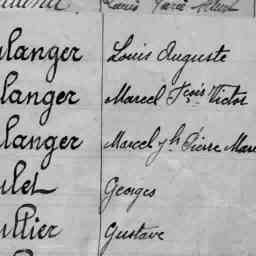 Louis Marie Albert
langer Louis Auguste
langer Marcel Fçois Victor
langer Marcel Jh Pierre Mari
ulet Georges
ullier Gustave